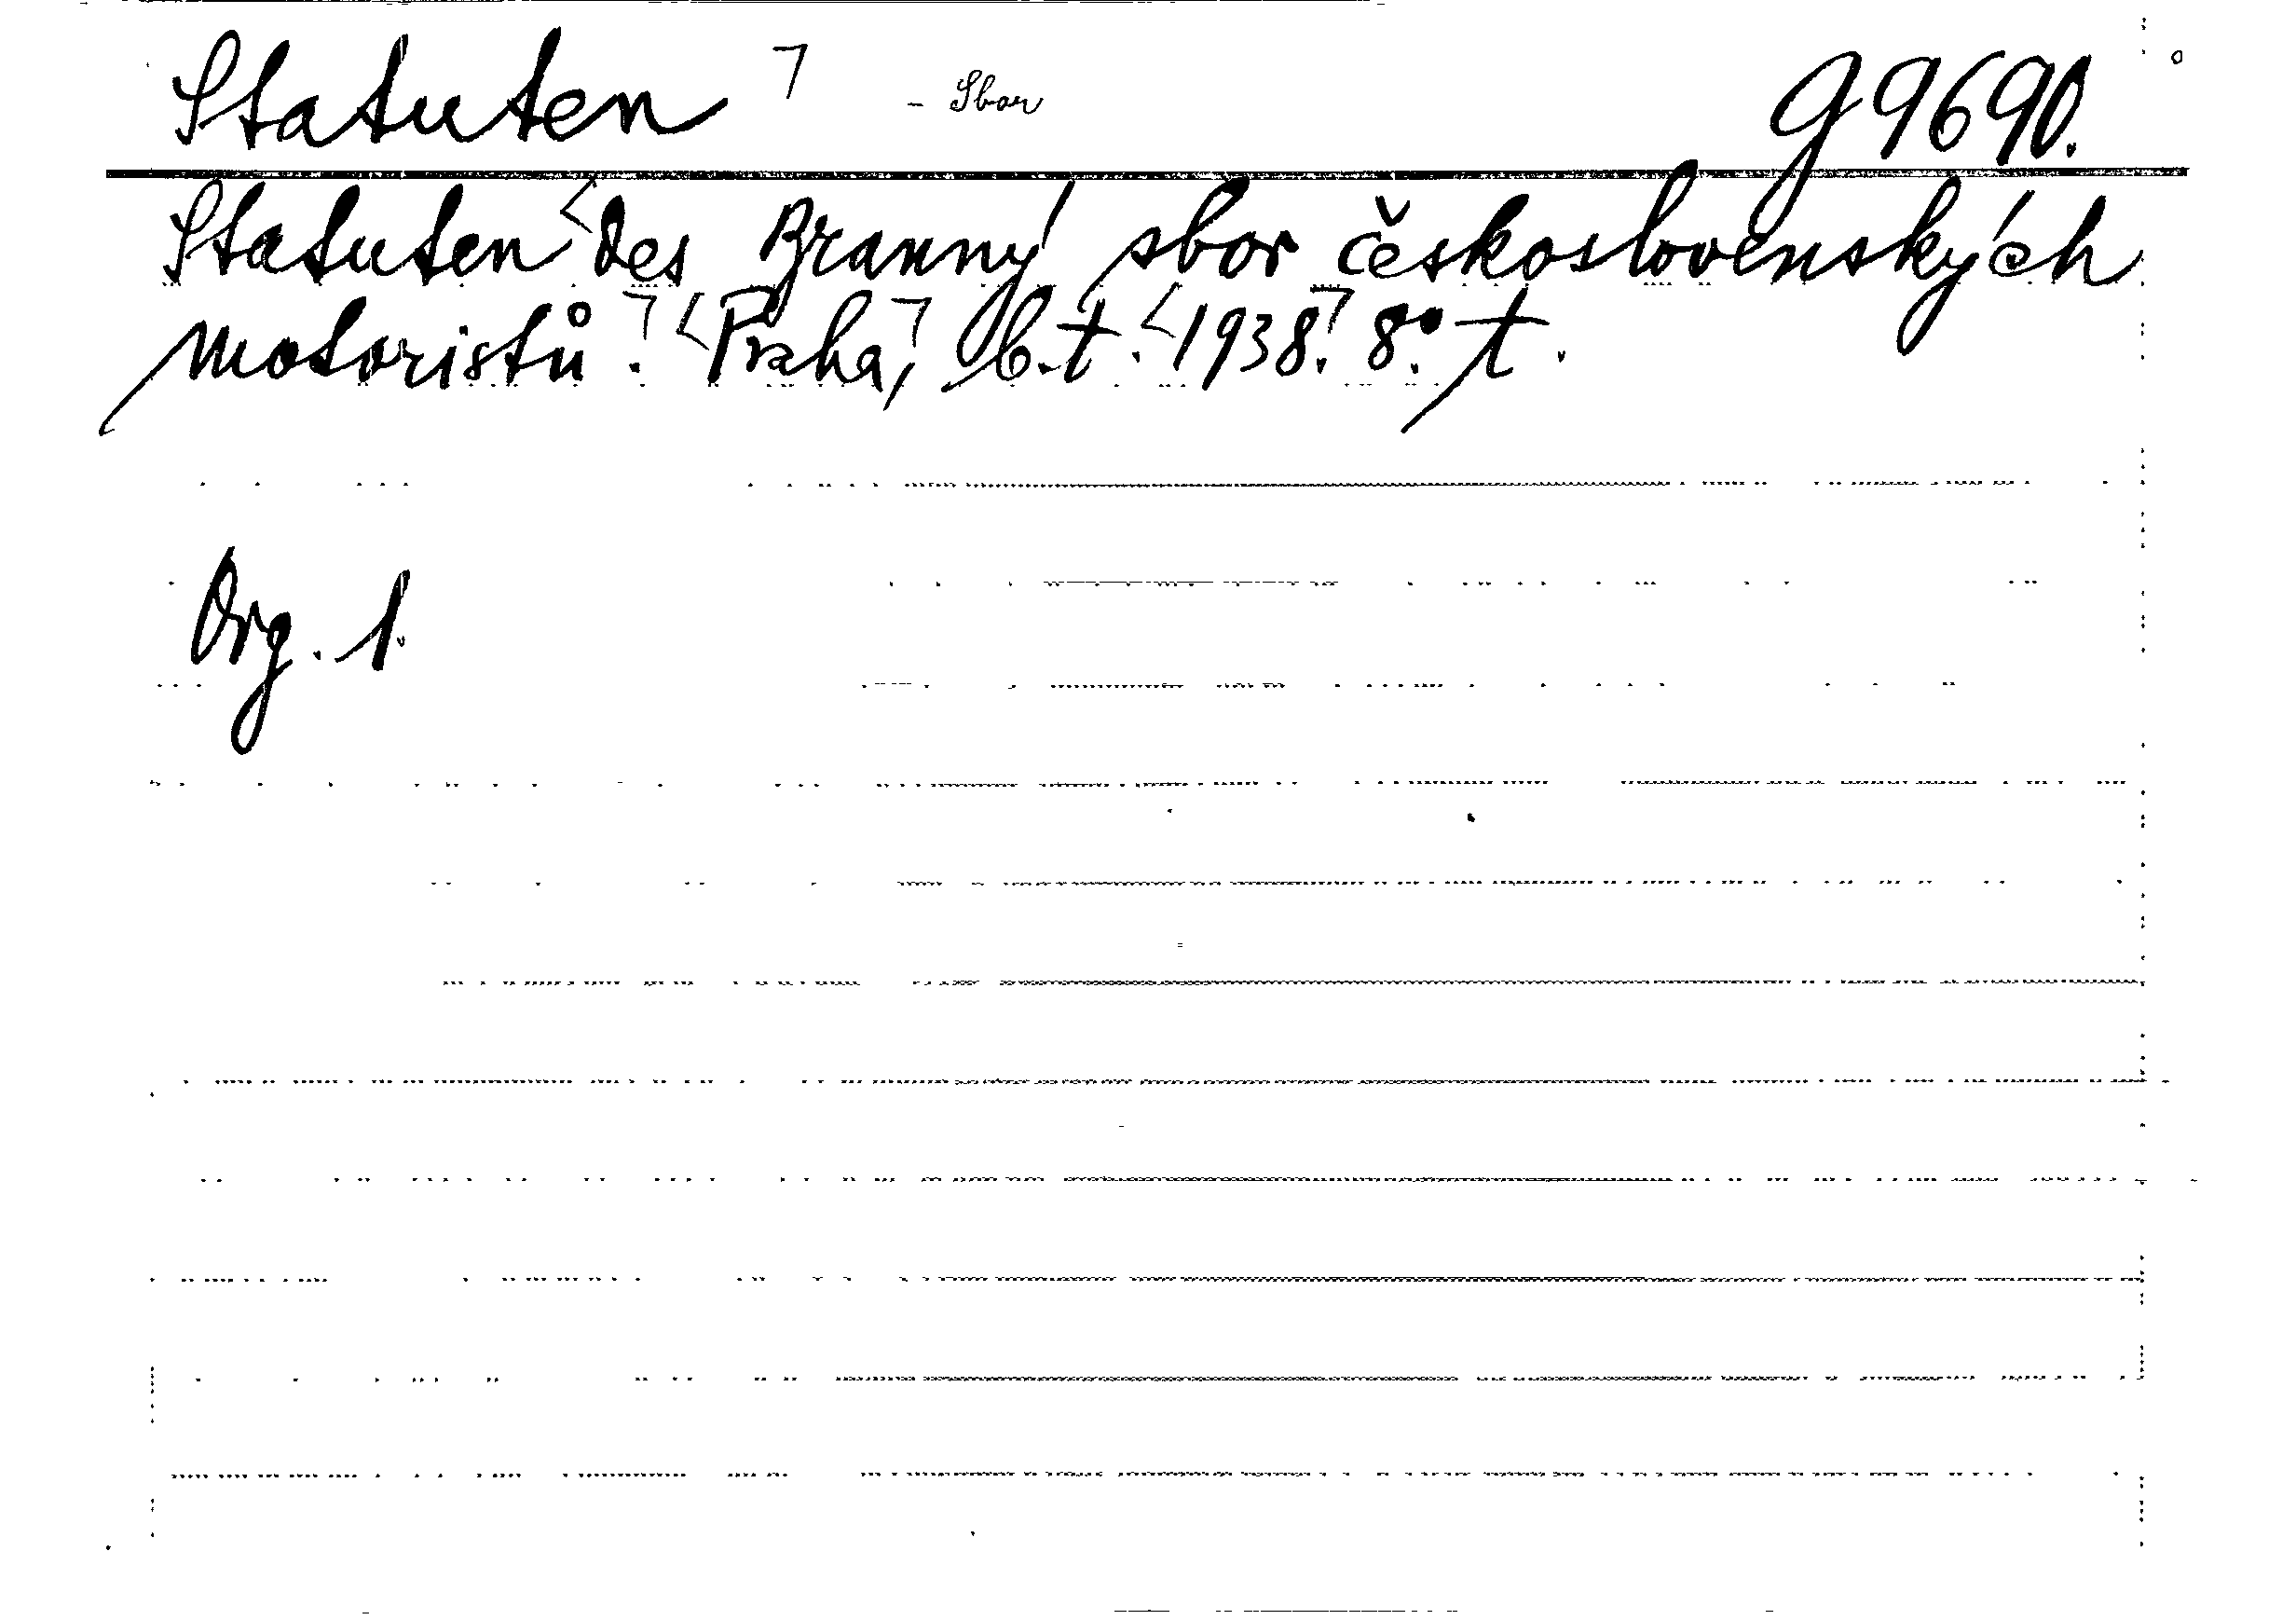 Statuten ⌉ - Sbor G 9690.
Statuten <des Branný sbor československých
motoristů.⌉ <Praha,⌉ b.t. <1938.⌉ 8°. t.
Org. 1.